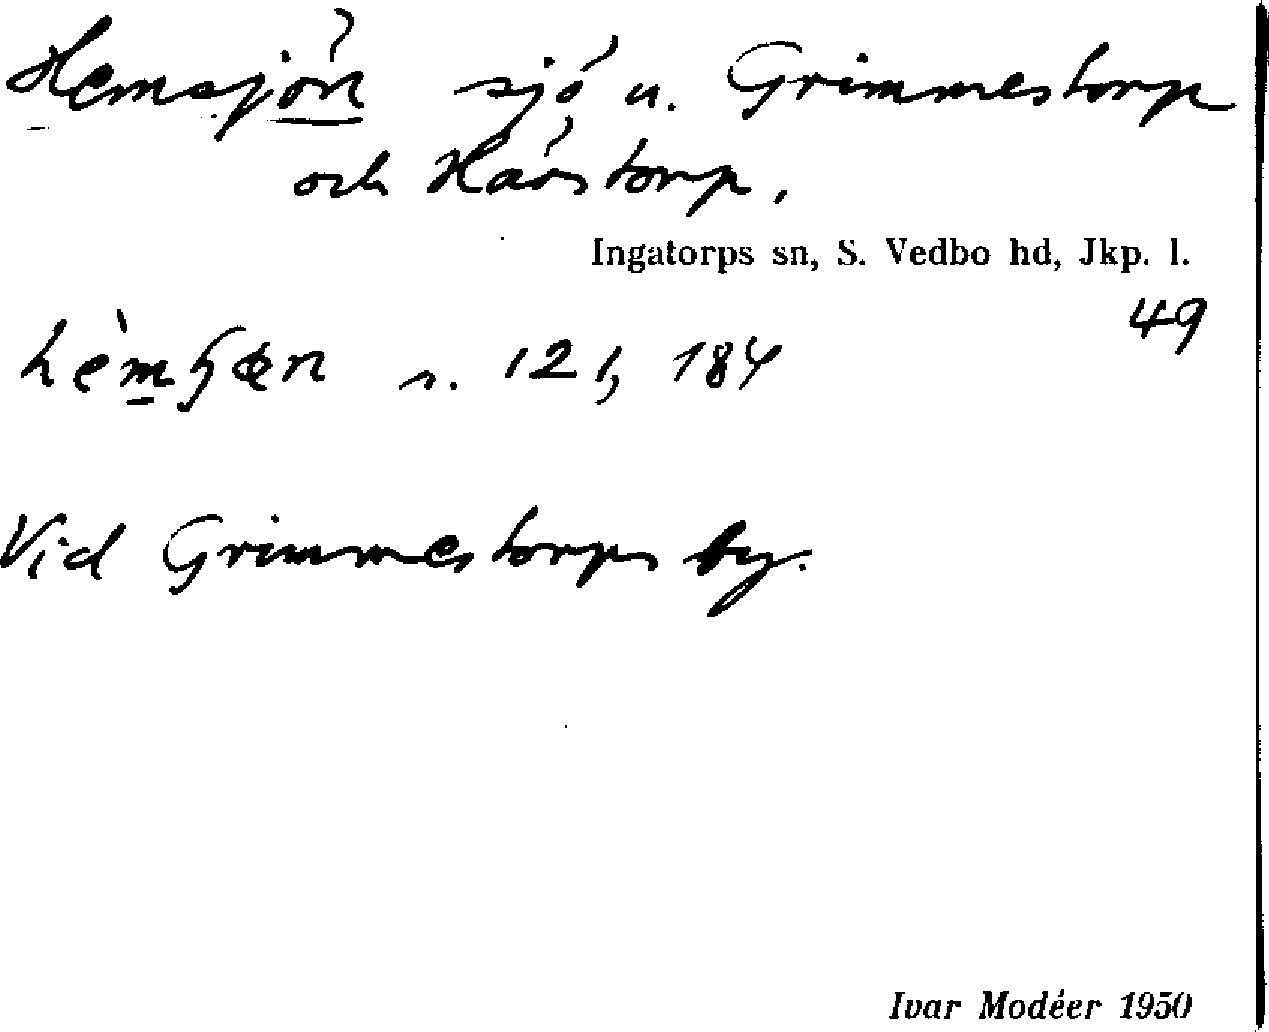 Hemsjön sjö u. Grimmestorp
och Haöstorp.
Ingatorps sn, S. Vedbo hd, Jkp. l.
49
s. 121, 184
Vid Grimmestorps by.
Ivar Modéer 1950